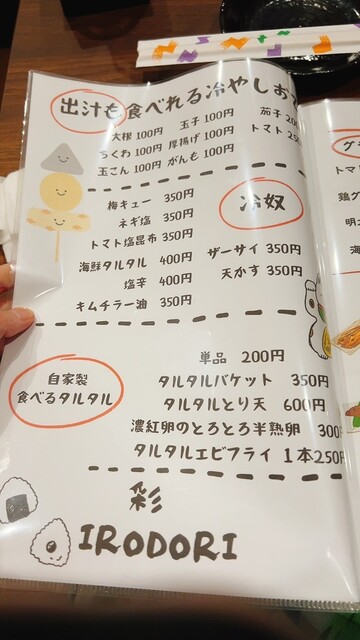 出汁も食べれる冷やしおで
大根 100円 玉子 100円 茄子 200
ちくわ 100円 厚揚げ 100円 トマト 250
玉こん 100円 がんも 100円
冷奴
梅キュー 350円
ネギ塩 350円
トマト塩昆布 350円
海鮮タルタル 400円 ザーサイ 350円
塩辛 400円 天かす 350円
キムチラー油 350円
自家製
食べるタルタル
単品 200円
タルタルバケット 350円
タルタルとり天 600円
濃紅卵のとろとろ半熟卵 300
タルタルエビフライ 1本250円
彩
IRODORI
グ
トマ
鶏グ
明太
海